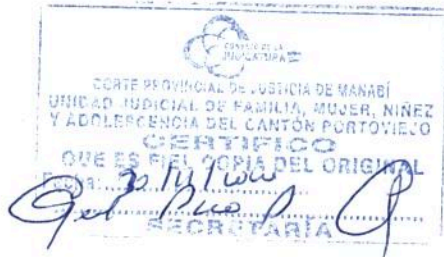 CONSEJO DE LA
JUDICATURA
CORTE PROVINCIAL DE JUSTICIA DE MANABÍ
UNIDAD JUDICIAL DE FAMILIA, MUJER, NIÑEZ
Y ADOLESCENCIA DEL CANTÓN PORTOVIEJO
CERTIFICO
QUE ES FIEL COPIA DEL ORIGINAL
Fecha:
SECRETARÍA